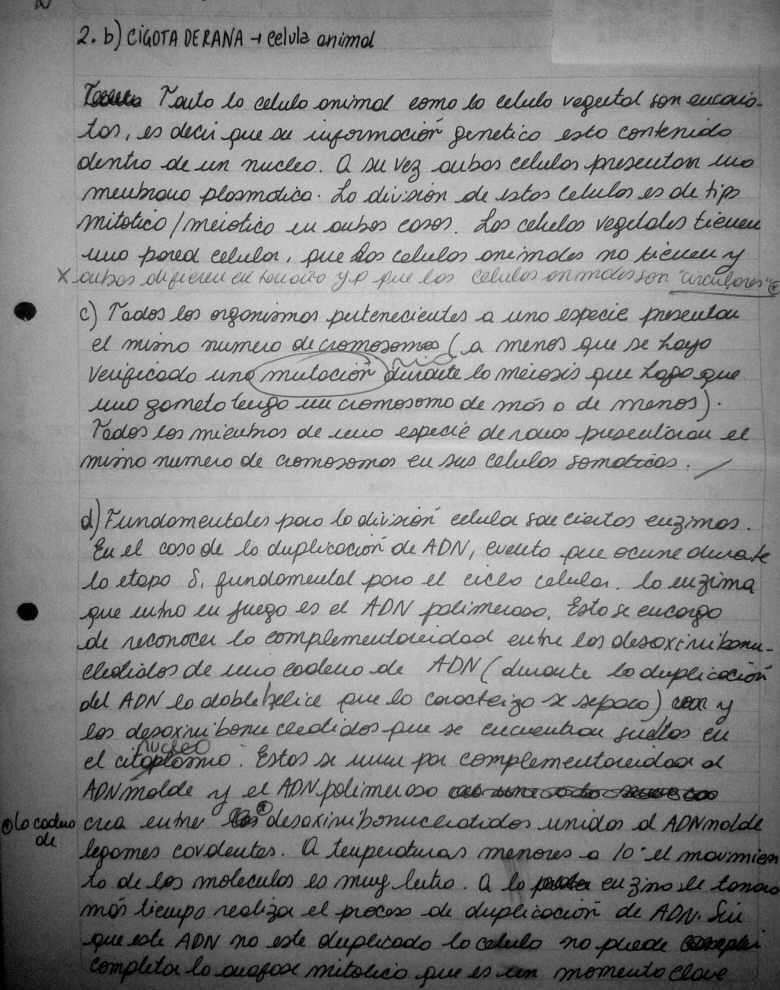 2. b) CIGOTA DE RANA → celula animal
Tanto la celula animal como la celula vegetal son eucario-
tas, es decir que su informacion genetica esta contenida
dentro de un nucleo. A su vez ambas celulas presentan una
membrana plasmatica. La division de estas celulas es de tipo
mitotico/meiotico en ambos casos. Las celulas vegetales tienen
una pared celular, que las celulas animales no tienen y
x ambas difieren en tamaño y que las celulas animales son "circulares"
c) Todos los organismos pertenecientes a una especie presentan
el mismo numero de cromosomas (a menos que se haya
verificado una mutación durante la meiosis que haga que
una gameta tenga un cromosoma de más o de menos).
Todos los miembros de una especie de ranas presentaran el
mismo numero de cromosomas en sus celulas somaticas.
d) Fundamentales para la división celular son ciertas enzimas.
En el caso de la duplicacion de ADN, evento que ocurre durante
la etapa S, fundamental para el ciclo celular. la enzima
que entra en juego es el ADN polimerasa. Esta se encarga
de reconocer la complementareidad entre los desoxirribonu-
cleotidos de una cadena de ADN (durante la duplicación
del ADN la doble helice que lo caracteriza se separa) y
los desoxirribonucleotidos que se encuentran sueltos en
nucleo
el citoplasma. Estos se unen por complementareidad al
ADN molde y el ADN polimerasa
⊕ la cadena de
crea entre ⊕ desoxirribonucleotidos unidos al ADN molde
legames covalentes. A temperaturas menores a 10° el movimien
to de las moleculas es muy lento. A la enzima le tomara
más tiempo realizar el proceso de duplicación de ADN. Sin
que este ADN no este duplicado la celula no puede
completar la anafase mitotica que es un momento clave